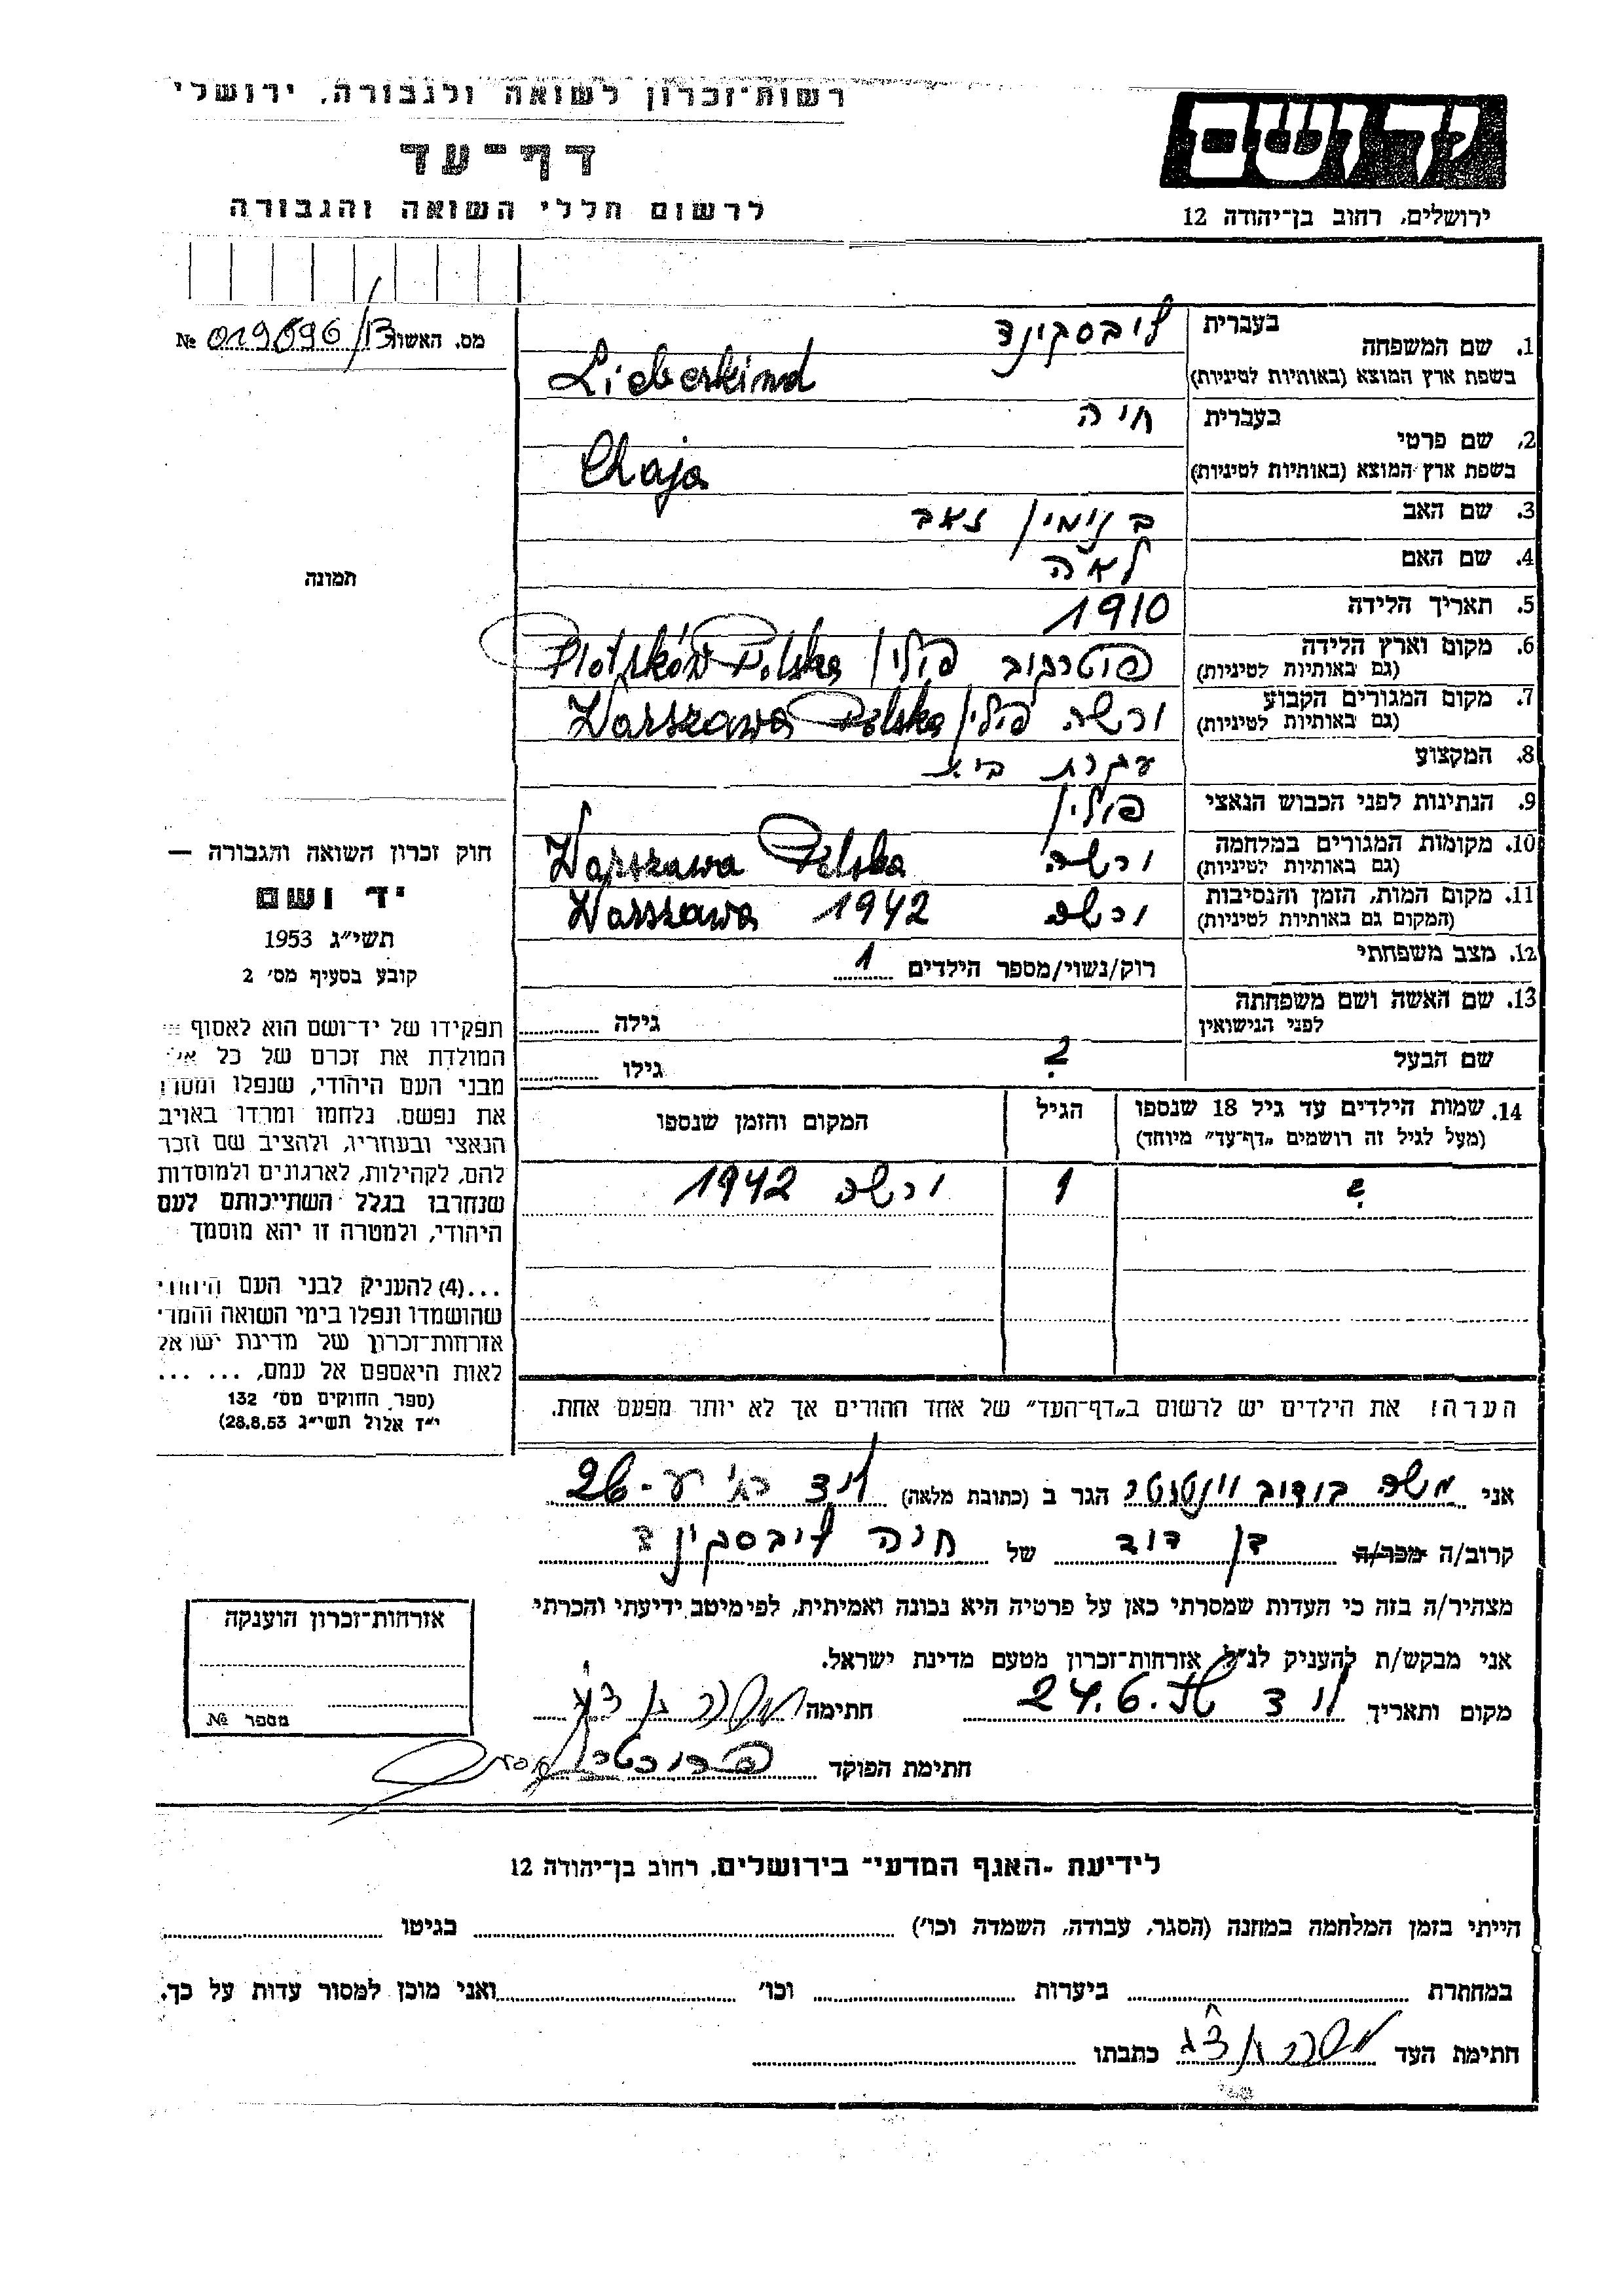 רשות־זכרון לשואה ולגבורה, ירושלי
דף־עד
לרשום חללי השואה והגבורה
ידושם
ירושלים, רחוב בן־יהודה 12
מס. האשה № 019696/13
תמונה
חוק זכרון השואה והגבורה —
יד ושם
תשי״ג 1953
קובע בסעיף מס׳ 2
תפקידו של יד־ושם הוא לאסוף
המולדת את זכרם של כל
מבני העם היהודי, שנפלו ומסרו
את נפשם, נלחמו ומרדו באויב
הנאצי ובעוזריו, ולהציב שם וזכר
להם, לקהילות, לארגונים ולמוסדות
שנחרבו בגלל השתייכותם לעם
היהודי, ולמטרה זו יהא מוסמך
...(4) להעניק לבני העם היהודי
שהושמדו ונפלו בימי השואה והמרי
אזרחות־זכרון של מדינת ישראל
לאות היאספם אל עמם, ... ...
(ספר החוקים מס׳ 132
י״ז אלול תשי״ג 28.8.53)
1. שם המשפחה
בעברית ליבסקינד
בשפת ארץ המוצא (באותיות לטיניות) Lieberkind
2. שם פרטי
בעברית חיה
בשפת ארץ המוצא (באותיות לטיניות) Chaja
3. שם האב בנימין זאב
4. שם האם לאה
5. תאריך הלידה 1910
6. מקום וארץ הלידה פוטרקוב פולין Piotrków Polska
(גם באותיות לטיניות)
7. מקום המגורים הקבוע ורשה פולין Warszawa Polska
(גם באותיות לטיניות)
8. המקצוע עקרת בית
9. הנתינות לפני הכבוש הנאצי פולין
10. מקומות המגורים במלחמה ורשה Warszawa Polska
(גם באותיות לטיניות)
11. מקום המות, הזמן והנסיבות ורשה 1942 Warszawa
(המקום גם באותיות לטיניות)
12. מצב משפחתי רוק/נשוי/מספר הילדים 1
13. שם האשה ושם משפחתה
לפני הנישואין גילה
שם הבעל ? גילו
14. שמות הילדים עד גיל 18 שנספו הגיל המקום והזמן שנספו
(מעל לגיל זה רושמים „דף־עד״ מיוחד)
? 1 ורשה 1942
הערה! את הילדים יש לרשום ב„דף־העד״ של אחד ההורים אך לא יותר מפעם אחת.
אני משה הגר ב (כתובת מלאה) לוד 26
קרוב/ה מכר/ה בן דוד של חיה ליבסקינד
מצהיר/ה בזה כי העדות שמסרתי כאן על פרטיה היא נכונה ואמיתית, לפי מיטב ידיעתי והכרתי
אני מבקש/ת להעניק לנ״ל אזרחות־זכרון מטעם מדינת ישראל.
מקום ותאריך לוד 24.6. חתימה
חתימת הפוקד
אזרחות־זכרון הוענקה
מספר №
לידיעת „האגף המדעי״ בירושלים, רחוב בן־יהודה 12
הייתי בזמן המלחמה במחנה (הסגר, עבודה, השמדה וכו׳) בגיטו
במחתרת ביערות וכו׳ ואני מוכן למסור עדות על כך.
חתימת העד כתבתו